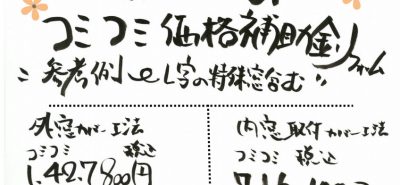 コミコミ価格補助金リフォーム
参考例 L字の特殊窓含む
外窓カバー工法
コミコミ 税込
1,427,800円
内窓取付カバー工法
コミコミ 税込